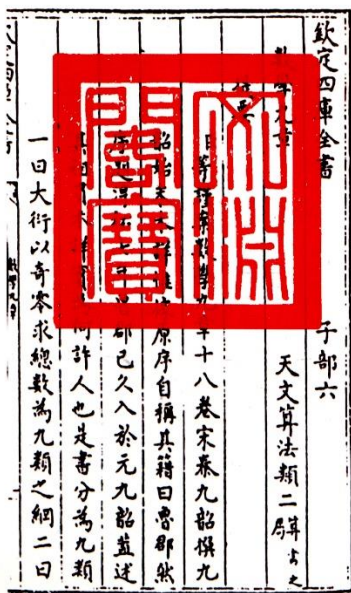 欽定四庫全書 子部六
數學九章 天文算法類二 算書之屬
提要
等謹案數學九章十八卷宋秦九韶撰九
韶始末未詳惟據原序自稱其籍曰魯郡然
序 郡已久入於元九韶蓋述
何許人也是書分為九類
一曰大衍以奇零求總數為九類之綱二曰
文淵
閣寶